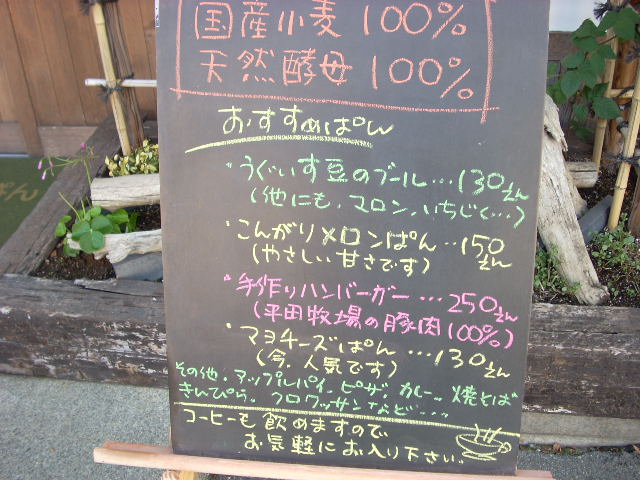 国産小麦100%
天然酵母100%
おすすめぱん
・うぐいす豆のブール…130えん
(他にも、マロン、いちじく…)
・こんがりメロンぱん…150えん
(やさしい甘さです)
・手作りハンバーガー…250えん
(平田牧場の豚肉100%)
・マヨチーズぱん…130えん
(今、人気です)
その他、アップルパイ、ピザ、カレー、焼そば
きんぴら、クロワッサンなど…
コーヒーも飲めますので
お気軽にお入り下さい。
ぱん